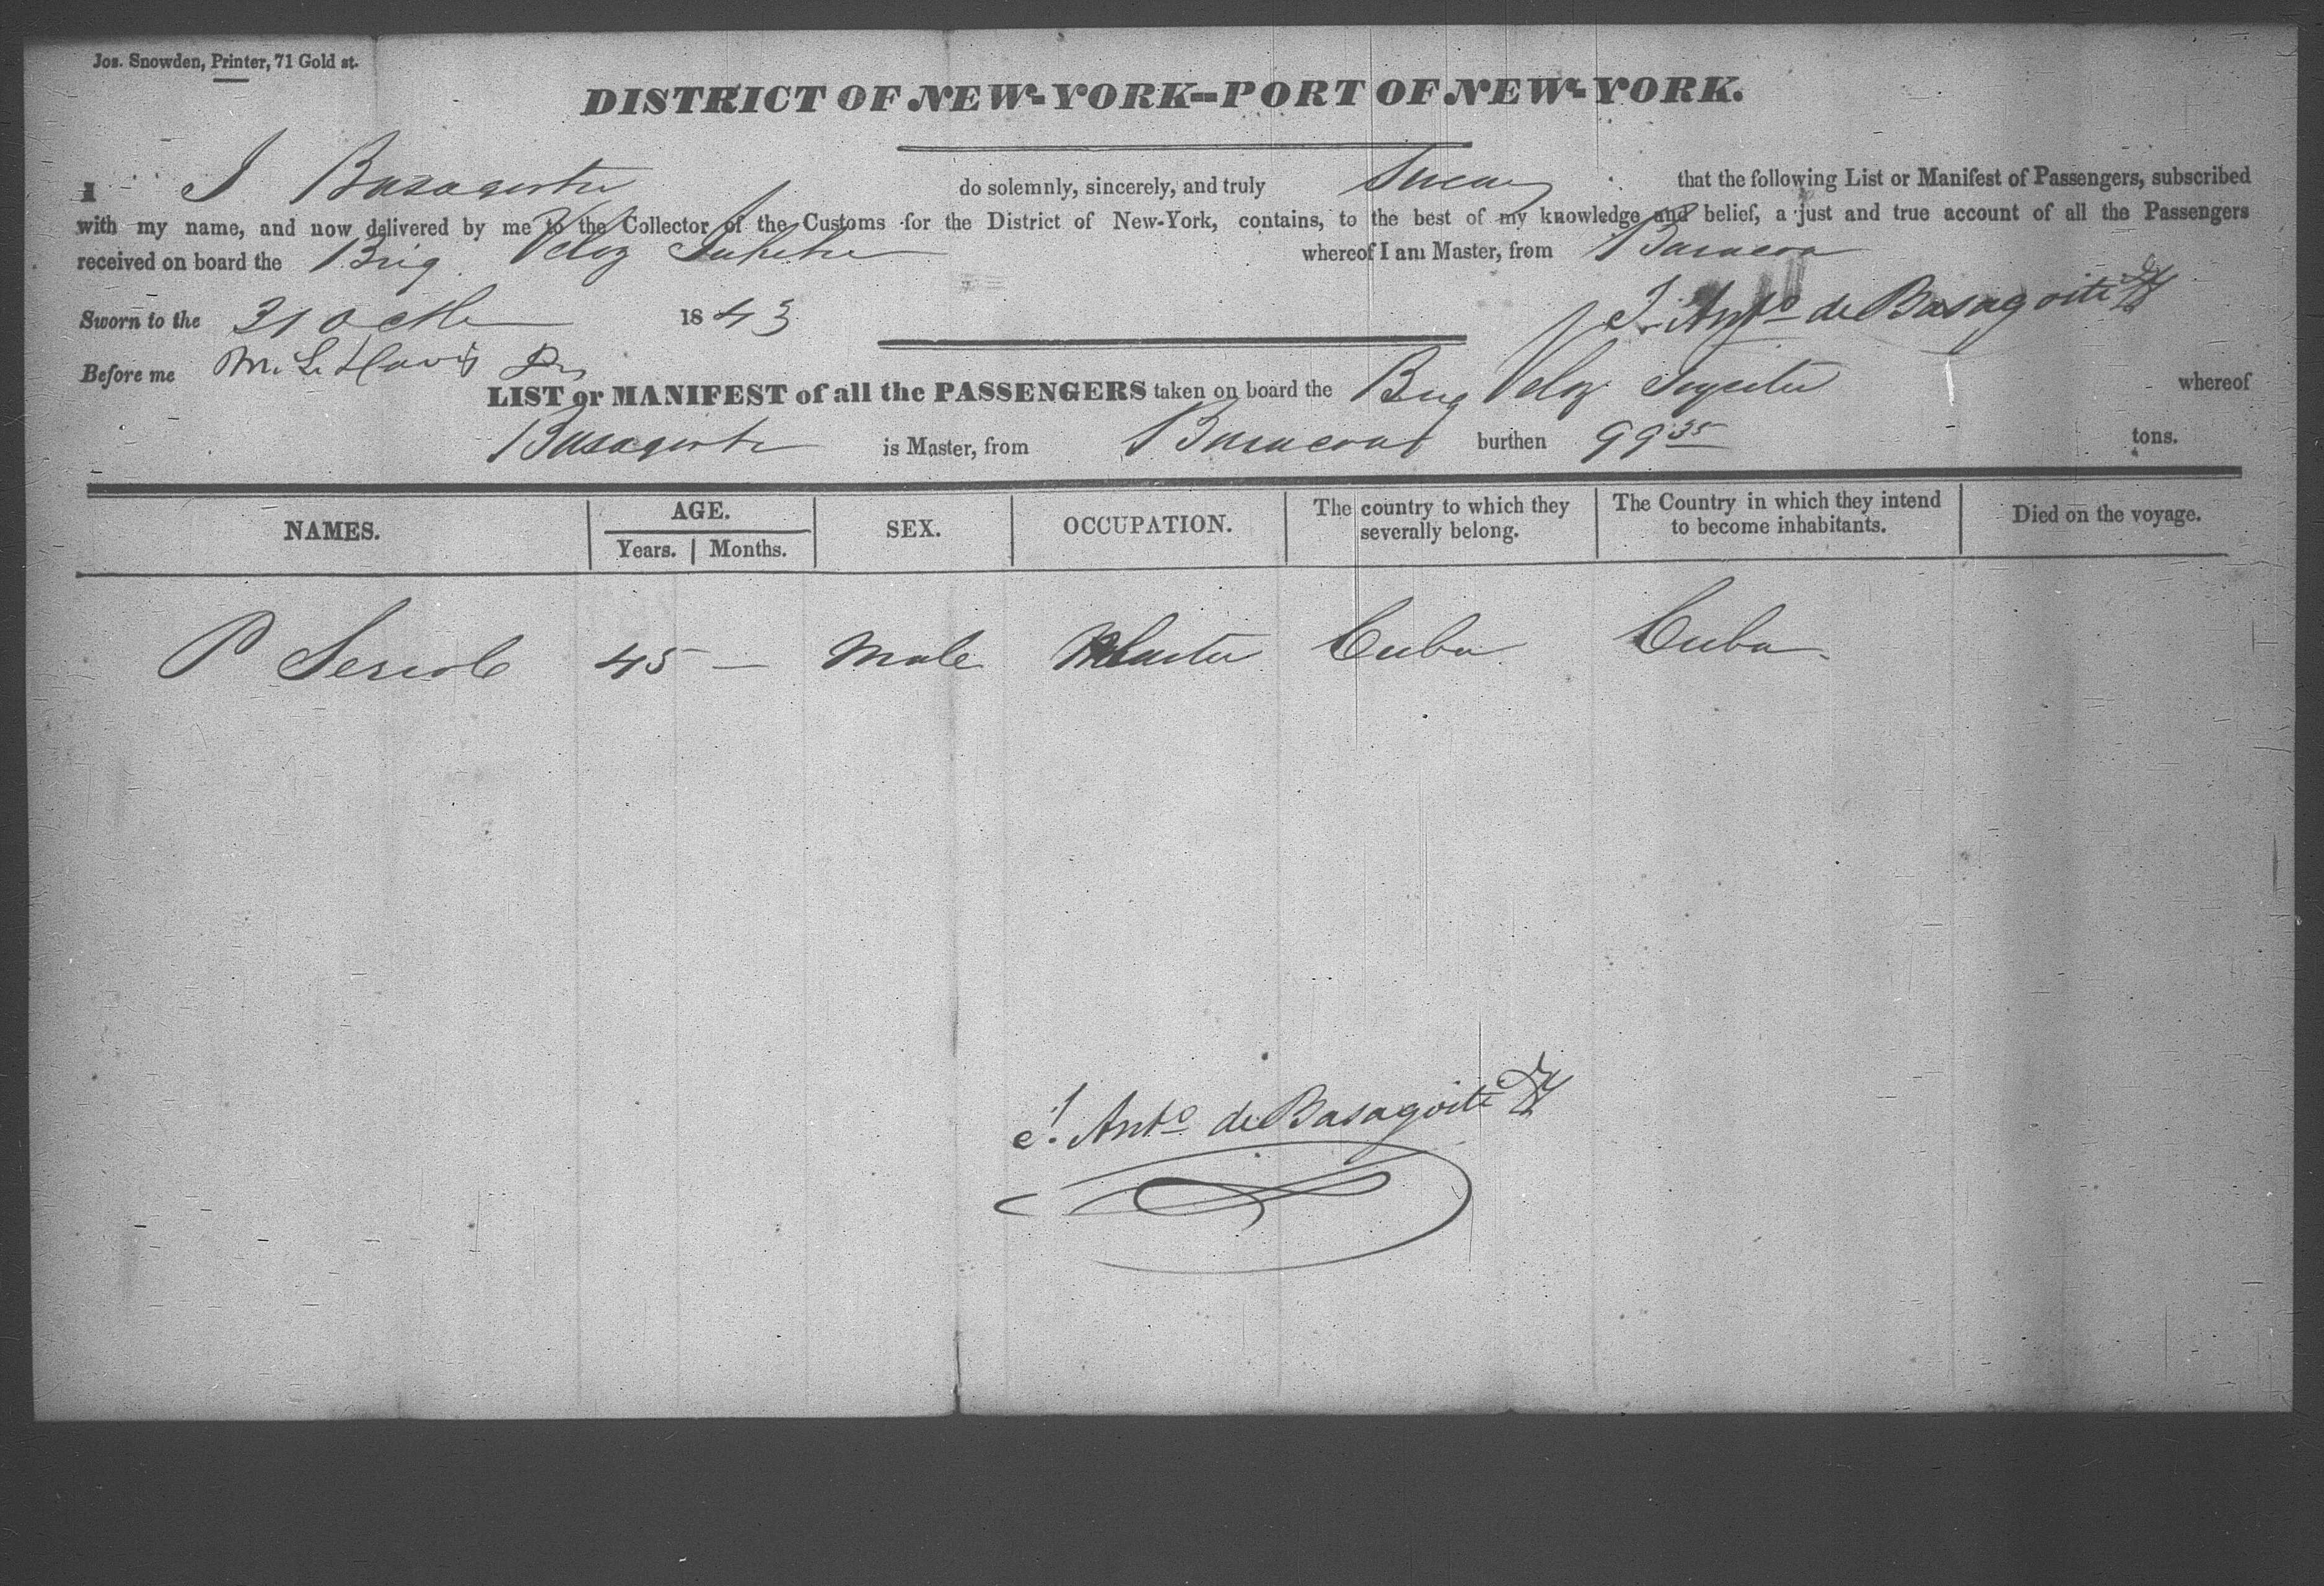 Jos. Snowden, Printer, 71 Gold st.
DISTRICT OF NEW-YORK--PORT OF NEW-YORK.
I J Basagoiti do solemnly, sincerely, and truly Swear that the following List or Manifest of Passengers, subscribed
with my name, and now delivered by me to the Collector of the Customs for the District of New-York, contains, to the best of my knowledge and belief, a just and true account of all the Passengers
received on board the Brig Veloz whereof I am Master, from Baracoa
Sworn to the 31 Octr 1843 J. Anto de Basagoiti
Before me M. L. Davis
LIST or MANIFEST of all the PASSENGERS taken on board the Brig Veloz whereof
Basagoiti is Master, from Baracoa burthen 99 35 tons.
NAMES. AGE. SEX. OCCUPATION. The country to which they severally belong. The Country in which they intend to become inhabitants. Died on the voyage.
Years. Months.
P 45 — Male Cuba Cuba
J. Anto de Basagoiti